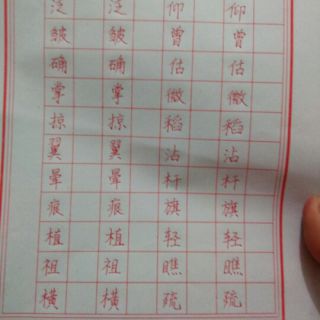 泛 泛 仰 仰
皱 皱 曾 曾
确 确 估 估
掌 掌 微 微
掠 掠 稻 稻
翼 翼 沾 沾
晕 晕 杆 杆
痕 痕 旗 旗
植 植 轻 轻
祖 祖 瞧 瞧
横 横 疏 疏